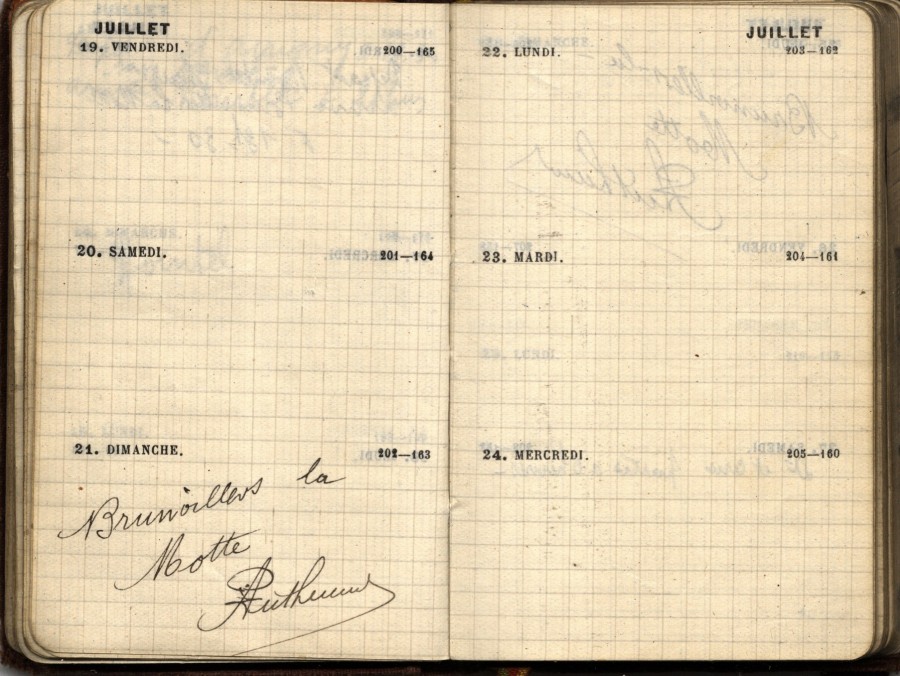 JUILLET
19. VENDREDI. 200—165
20. SAMEDI. 201—164
21. DIMANCHE. 202—163
Brunvillers la
Motte
JUILLET
22. LUNDI. 203—162
23. MARDI. 204—161
24. MERCREDI. 205—160